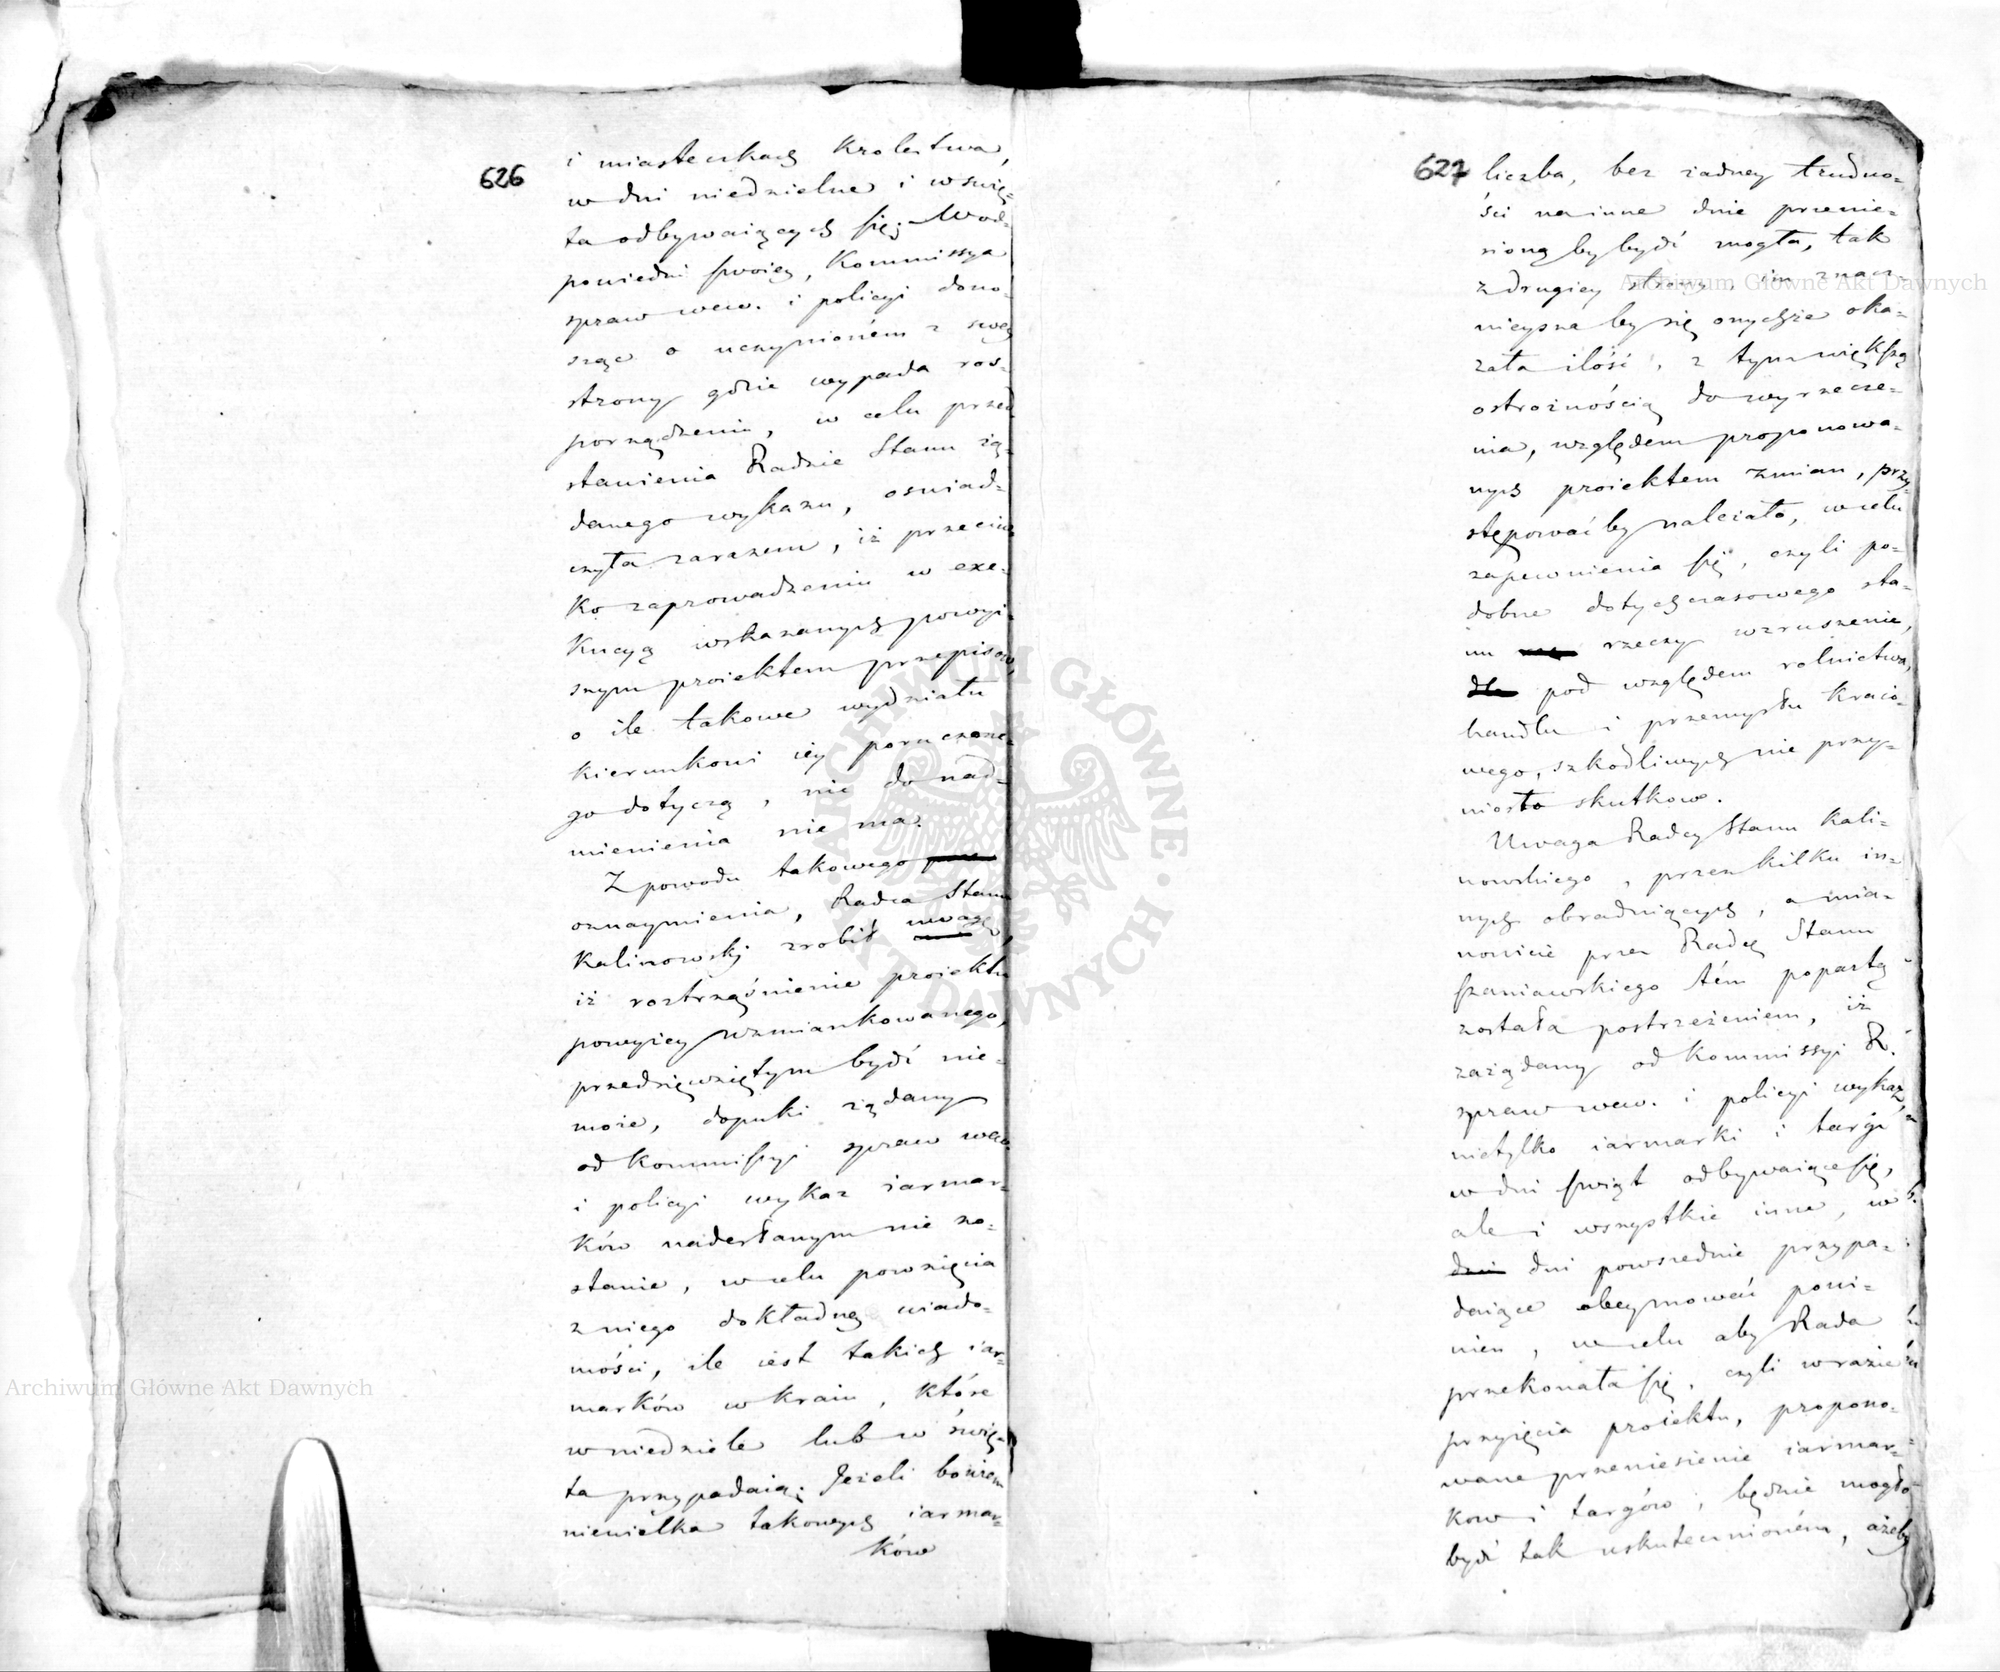 626
i miasteczkach Krolestwa,
w dni niedzielne i w świę-
ta odbywaiących się; W od-
powiedzi swoiey, Kommissya
spraw wew. i policyi dono-
sząc o uczynioném z swey
strony gdzie wypada roz-
porządzeniu, w celu przed
stawienia Radzie Stanu żą-
danego wykazu, oswiad-
czyła zarazem, iż przeciw
ko zaprowadzeniu w exe-
kucyą wskazanych powyż-
szym proiektem przepisow,
o ile takowe wydziału
kierunkowi iey poruczone-
go dotyczą, nic do nad-
mienienia nie ma.
Z powodu takowego
oznaymienia, Radca Stanu
Kalinowski zrobił uwagę,
iż roztrząśnienie proiektu
powyżey wzmiankowanego,
przedsięwziętym bydź nie-
może, dopuki żądany
od Kommissyi spraw wew.
i policyi wykaz iarmar-
ków nadesłanym nie zo-
stanie, w celu powzięcia
z niego dokładney wiado-
mości, ile iest takich iar-
marków w kraiu, które
w niedziele lub w świę-
ta przypadaią; Jeżeli bowiem
niewielka takowych iarmar-
ków
627
liczba, bez żadney trudno-
ści na inne dnie przenie-
sioną by bydź mogła, tak
z drugiey strony, im znacz-
nieysza by się onychże oka-
zała ilość, z tym większą
ostrożnością do wyrzecze-
nia, względem proponowa-
nych proiektem zmian, przy-
stępować by należało, w celu
zapewnienia się, czyli po-
dobne dotychczasowego sta-
nu rzeczy wzruszenie,
pod względem rolnictwa,
handlu i przemysłu kraio-
wego, szkodliwych nie przy-
niosło skutkow.
Uwaga Radcy Stanu Kali-
nowskiego, przez kilku in-
nych obraduiących, a mia-
nowicie przez Radcę Stanu
Szaniawskiego tém popartą
została postrzeżeniem, iż
zażądany od Kommissyi R.
spraw wew. i policyi wykaz
nietylko iarmarki i targi
w dni świąt odbywaiące się,
ale i wszystkie inne, w
dni dni powszednie przypa-
daiące obeymować powi-
nien, w celu aby Rada
przekonała się, czyli w razie
przyięcia proiektu, propono-
wane przeniesienie iarmar-
kow i targów, będzie mogło
bydź tak uskutecznioném, ażeby
Archiwum Główne Akt Dawnych
Archiwum Główne Akt Dawnych
ARCHIWUM GŁÓWNE · AKT DAWNYCH ·